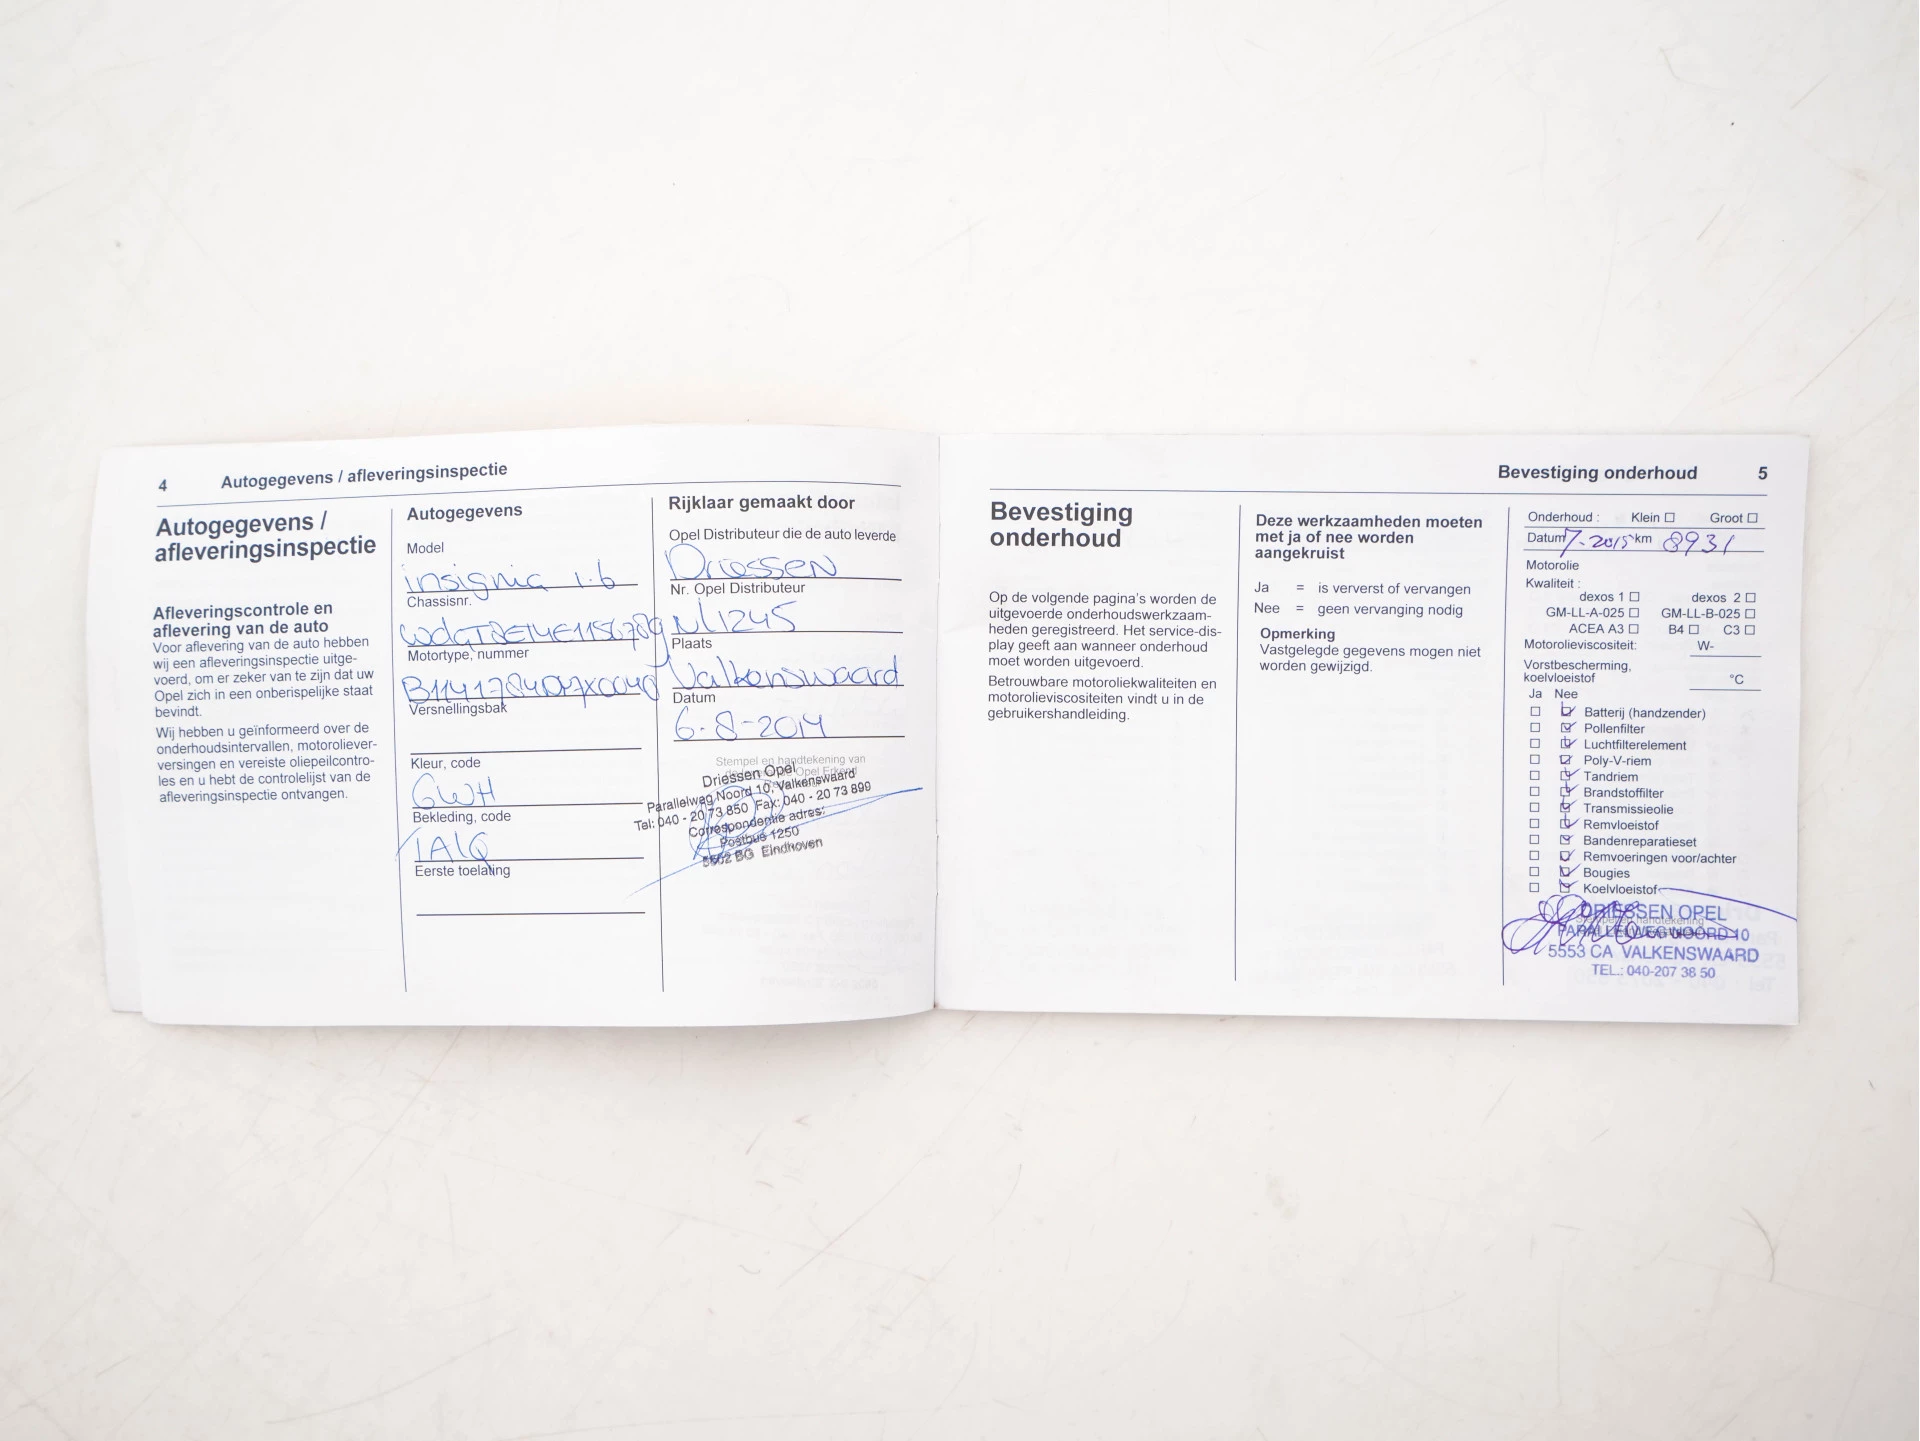 4 Autogegevens / afleveringsinspectie
Autogegevens /
afleveringsinspectie
Afleveringscontrole en
aflevering van de auto
Voor aflevering van de auto hebben
wij een afleveringsinspectie uitge-
voerd, om er zeker van te zijn dat uw
Opel zich in een onberispelijke staat
bevindt.
Wij hebben u geïnformeerd over de
onderhoudsintervallen, motoroliever-
versingen en vereiste oliepeilcontro-
les en u hebt de controlelijst van de
afleveringsinspectie ontvangen.
Autogegevens
Model
insignia 1.6
Chassisnr.
Motortype, nummer
Versnellingsbak
Kleur, code
GWH
Bekleding, code
Eerste toelating
Rijklaar gemaakt door
Opel Distributeur die de auto leverde
Driessen
Nr. Opel Distributeur
Nl1245
Plaats
Valkenswaard
Datum
6-8-2014
Stempel en handtekening van
Driessen Opel
Parallelweg Noord 10, Valkenswaard
Tel: 040 - 20 73 850 Fax: 040 - 20 73 899
Correspondentie adres:
Postbus 1250
5602 BG Eindhoven
Bevestiging onderhoud 5
Bevestiging
onderhoud
Op de volgende pagina's worden de
uitgevoerde onderhoudswerkzaam-
heden geregistreerd. Het service-dis-
play geeft aan wanneer onderhoud
moet worden uitgevoerd.
Betrouwbare motoroliekwaliteiten en
motorolieviscositeiten vindt u in de
gebruikershandleiding.
Deze werkzaamheden moeten
met ja of nee worden
aangekruist
Ja = is ververst of vervangen
Nee = geen vervanging nodig
Opmerking
Vastgelegde gegevens mogen niet
worden gewijzigd.
Onderhoud : Klein Groot
Datum 7-2015 km 8931
Motorolie
Kwaliteit :
dexos 1 dexos 2
GM-LL-A-025 GM-LL-B-025
ACEA A3 B4 C3
Motorolieviscositeit: W-
Vorstbescherming,
koelvloeistof °C
Ja Nee
Batterij (handzender)
Pollenfilter
Luchtfilterelement
Poly-V-riem
Tandriem
Brandstoffilter
Transmissieolie
Remvloeistof
Bandenreparatieset
Remvoeringen voor/achter
Bougies
Koelvloeistof
DRIESSEN OPEL
PARALLELWEG NOORD 10
5553 CA VALKENSWAARD
TEL.: 040-207 38 50